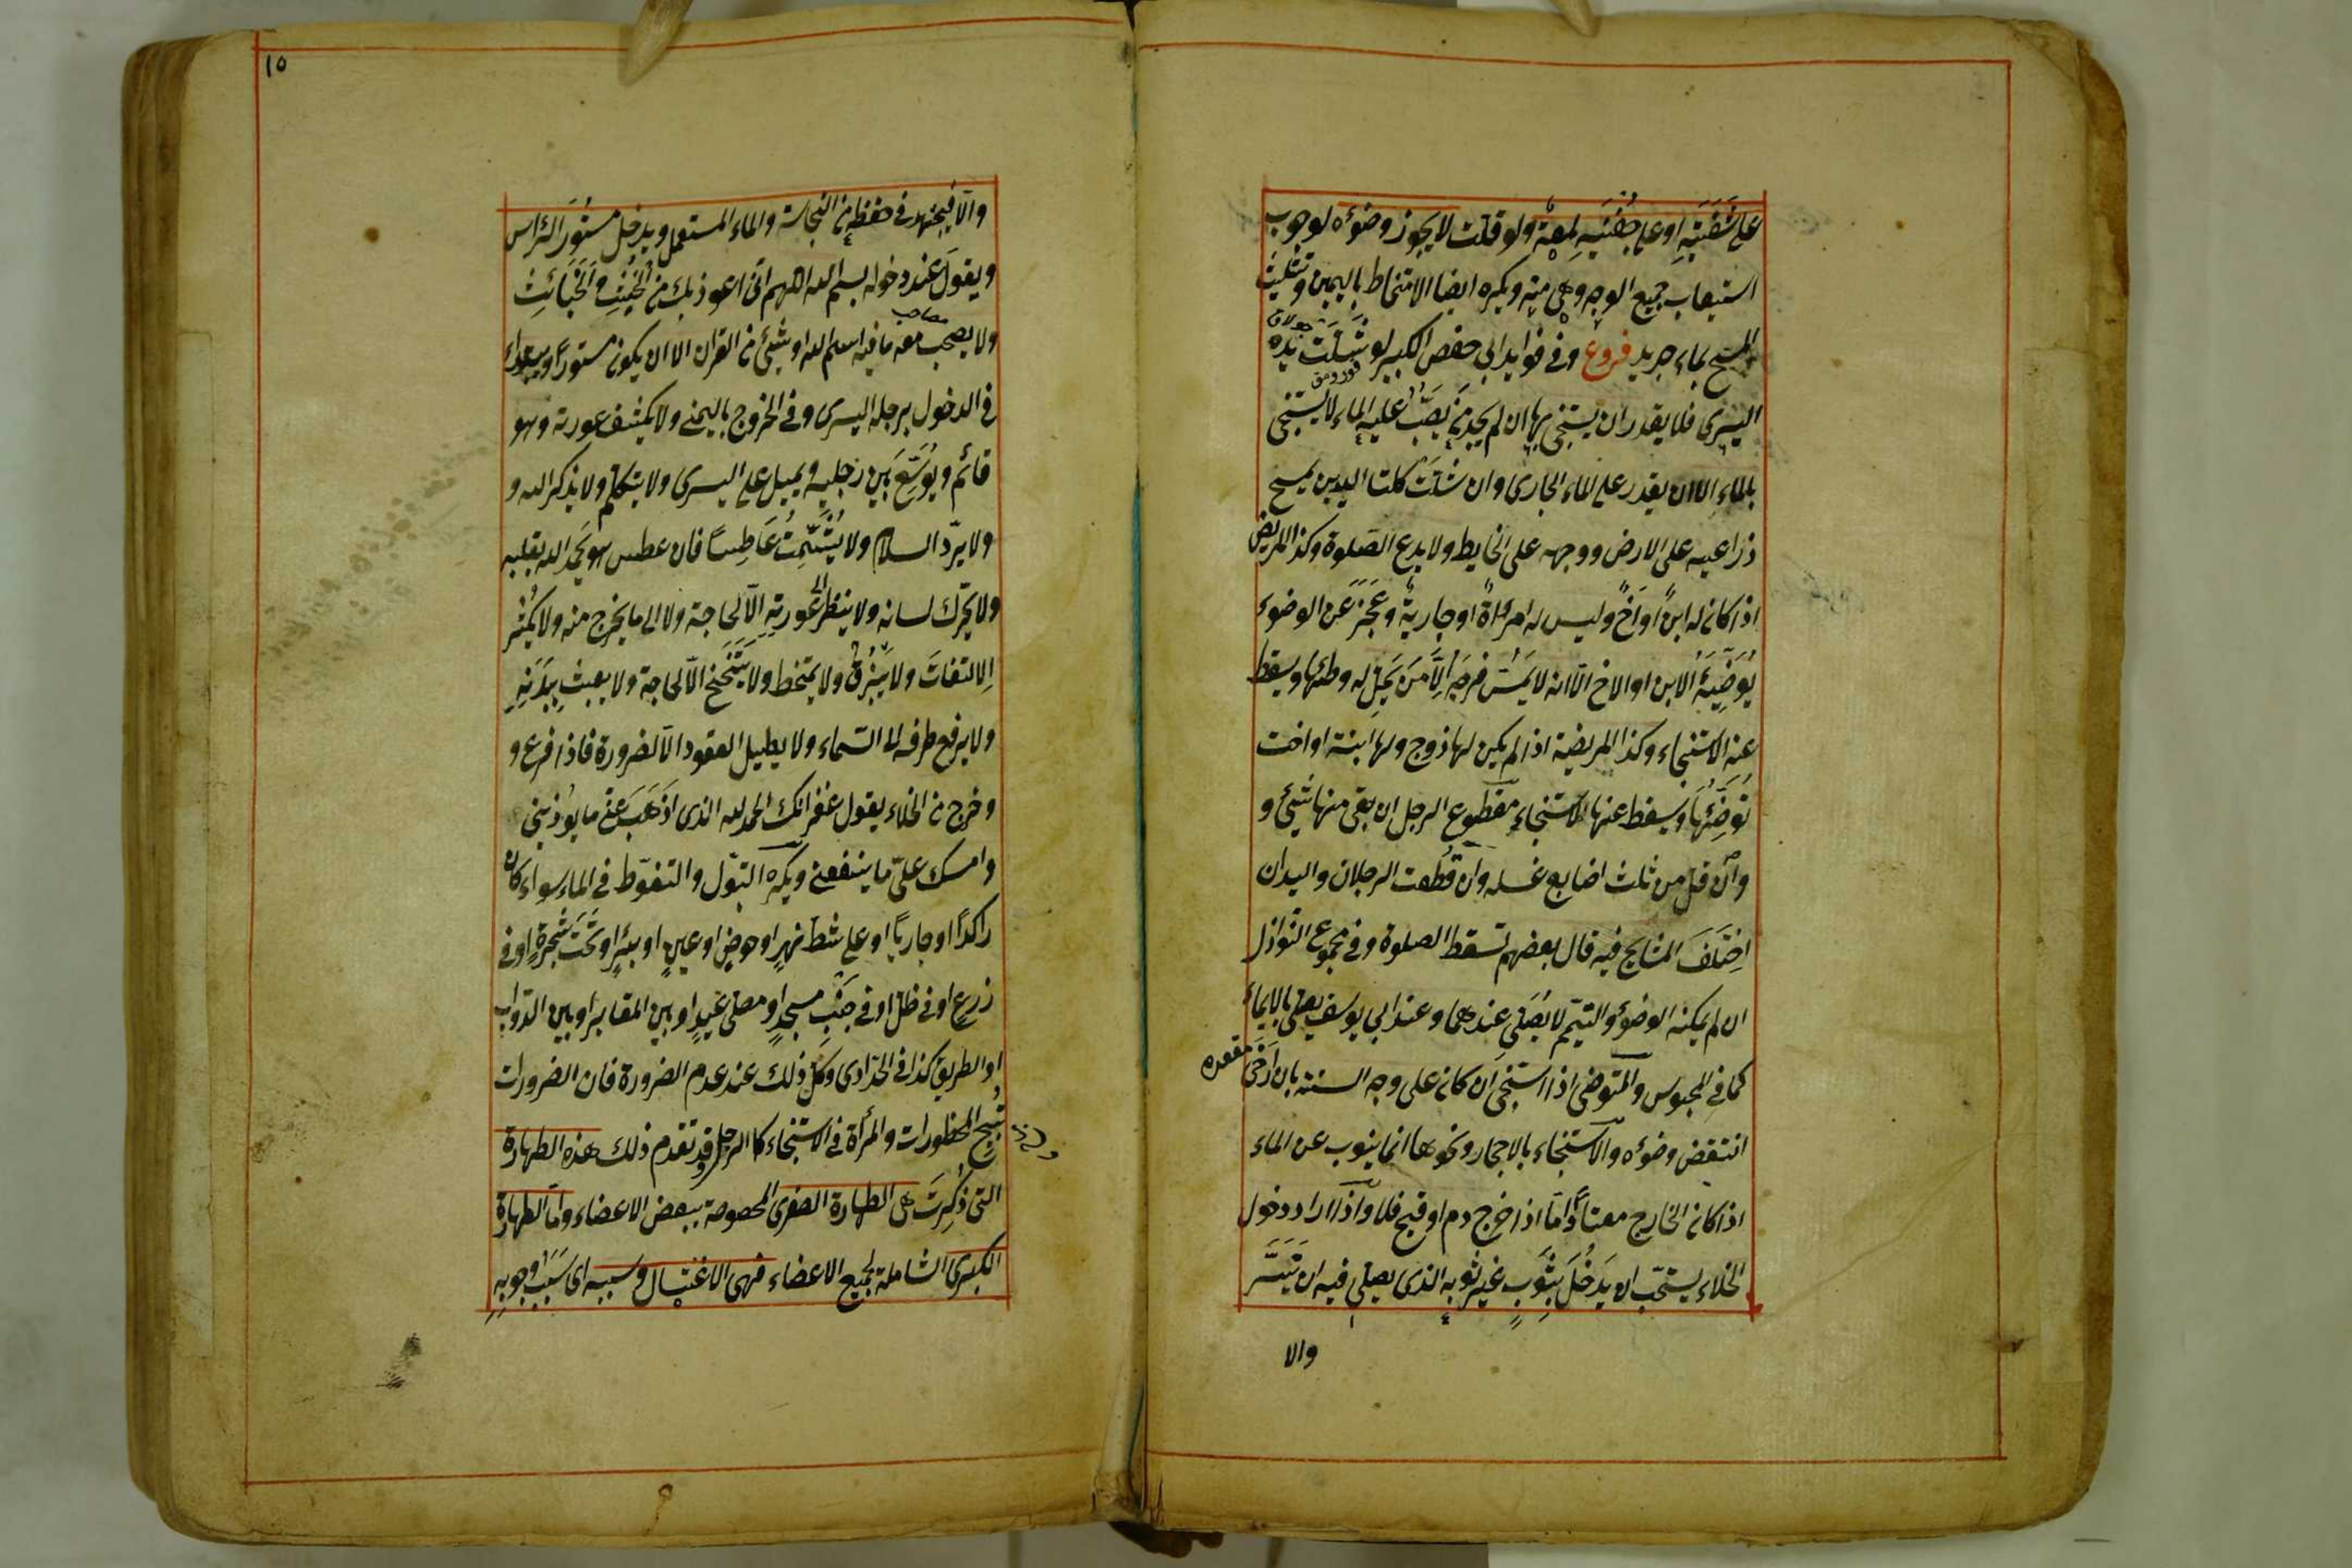 على شَفَتَيْهِ او على جَفْنَيْهِ لمعة ولو قلّت لا يجوز وضوءه لوجوب
استيعاب جميع الوجه وهي منه ويكره ايضا الامتخاط باليمين وتثليث
المسح بماء جديد فروع وفي فوايد ابي حفص الكبير لو شَلَّتْ يده
اليسرى فلا يقدر ان يستنجي بها ان لم يجد من يَصُبُّ عليه الماء لا يستنجي
بالماء الا ان يقدر على الماء الجارى وان شلّت كلتا اليدين يمسح
ذراعيه على الارض ووجهه على الحايط ولا يدع الصّلوة وكذا المريض
اذا كان له ابنٌ او اَخٌ وليس له امرأةٌ او جاريةٌ وعَجَزَ عن الوضوء
يُوَضِّيهُ الابن او الاخ الّا انه لا يَمَسُّ فَرْجَهُ اِلَّا مَنْ يَحِلُّ له وطئها ويسقط
عنه الاستنجاء وكذا المريضة اذا لم يكن لها زوج ولها ابنة او اخت
تُوَضِّئُهَا ويسقط عنها الاستنجاء مقطوع الرجل ان بقى منها شئ و
وان قلّ من ثلث اصابع غسله وان قُطعت الرجلان واليدان
اِخْتَلَفَ المشايخ فيه قال بعضهم تسقط الصلوة وفي مجموع النوازل
ان لم يمكنه الوضوء والتيمّم لا يُصَلّي عندهما وعند ابي يوسف يصلى بالايماء
كما في المحبوس والمتوضى اذا استنجى ان كان على وجه السنة بان اَرْخَى مقعده
انتقض وضوءه والّا الاستنجاء بالاحجار ونحوها انما ينوب عن الماء
اذا كان الخارج معتادًا امّا اذا خرج دم او قيح فلا واذا اراد دخول
الخلاء يستحبّ ان يَدْخُلَ بِثَوبٍ غيرِ ثوبه الذى يصلى فيه ان تَيَسَّرَ
والا
١٥
والّا فيجتهد في حفظه من النجاسة والماء المستعمل ويدخل مستُورَ الرّأس
ويقول عند دخوله بسم الله اللهم انّى اعوذ بك من الخُبُثِ والخَبَائِثِ
مصاحب
ولا يصحب معه ما فيه اسم لله او شئ من القران الا ان يكون مستورًا ويبدا
في الدخول برجله اليسرى وفي الخروج باليمنى ولا يكشف عورته وهو
قائم ويُوَسِّعُ بَين رجليه ويميل على اليسرى ولا يتكلّم ولا يذكر الله و
ولا يردّ السلام ولا يُشَمِّتُ عَاطِسًا فان عطس هو يحمد الله بقلبه
ولا يحرّك لسانه ولا ينظر الى عورته اِلّا لحاجة ولا الى ما يخرج منه ولا يُكْثِر
الالتفاتَ ولا يَبْزُقُ ولا يمتخط ولا يَتَنَحْنَحُ الّا لحاجة ولا يعبث بِبَدَنِهِ
ولا يرفع طرفه الى السّماء ولا يطيل القعود الّا لضرورة فاذا فرغ و
وخرج من الخلاء يقول غفرانك الحمد لله الذى اَذْهَبَ عنّى ما يؤذينى
وامسك علىّ ما ينفعنى ويكره التبوّل والتغوّط في الماء سواء كان
راكدًا او جاريًا او على شطّ نهرٍ او حوضٍ او عينٍ او بئرٍ او تَحْتَ شجرةٍ او في
زرعٍ او في ظلّ او في جَنْبِ مسجدٍ او مصلى عيدٍ او بين المقابر او بين الدّوابّ
او الطريق كذا في الحدّادى وكلّ ذلك عند عدم الضرورة فان الضرورات
تُبِيحُ المحظورات والمرأة في الاستنجاء كالرجل وقد تقدم ذلك هذه الطهارة
التى ذُكِرَتْ هى الطهارة الصغرى المخصوصة ببعض الاعضاء وامّا الطهارة
الكبرى الشاملة لجميع الاعضاء فهى الاغتسال وسببه اى سَبَبُ وجوبِهِ